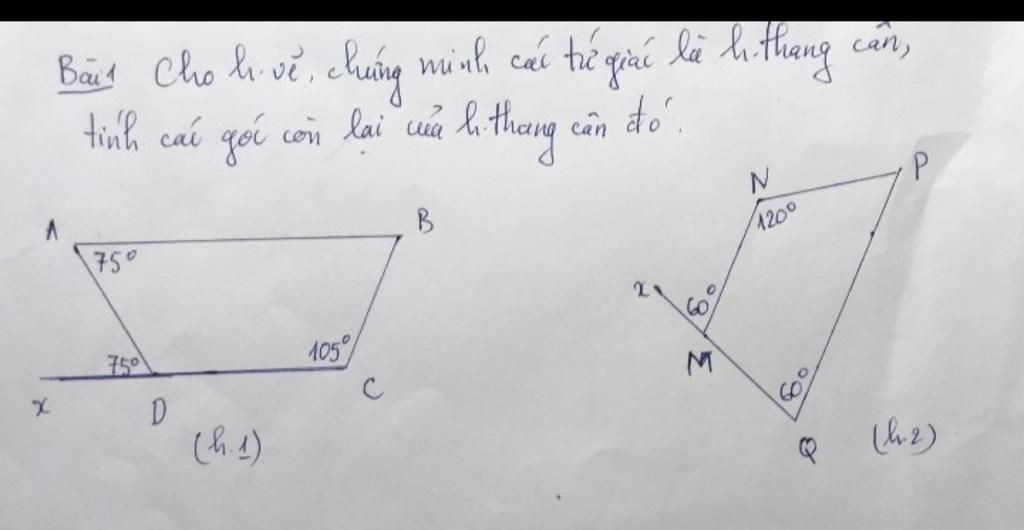 Bài 1 Cho h.vẽ, chứng minh các tứ giác là h.thang cân,
tính các góc còn lại của h.thang cân đó.
A
B
75°
75°
105°
x
D
C
(h.1)
N
P
120°
x
60°
M
60°
Q
(h.2)